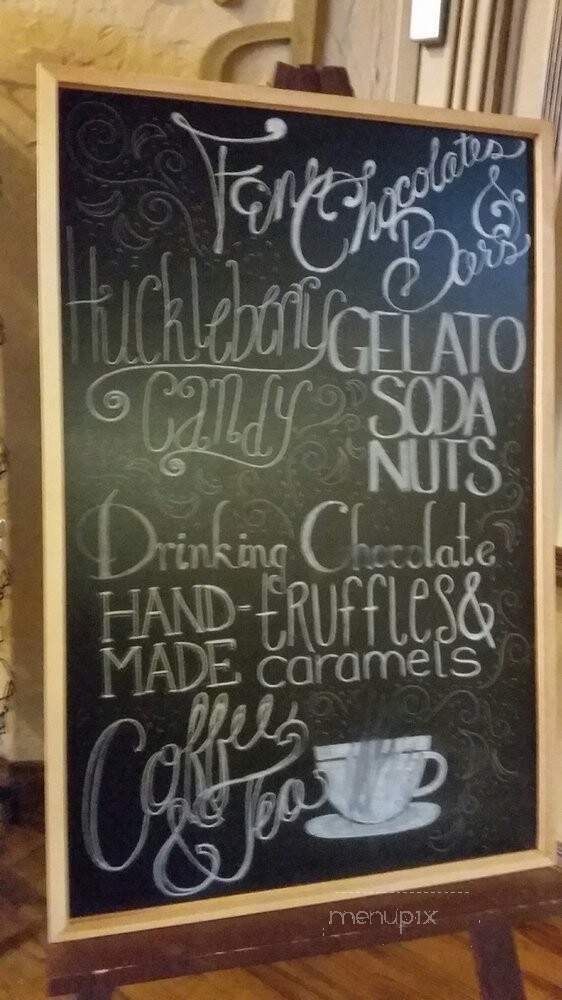 Fen Chocolates
& Bars
Huckleberry
Candy
GELATO
SODA
NUTS
Drinking Chocolate
HAND-MADE
truffles &
caramels
Coffee
& Tea
menupix